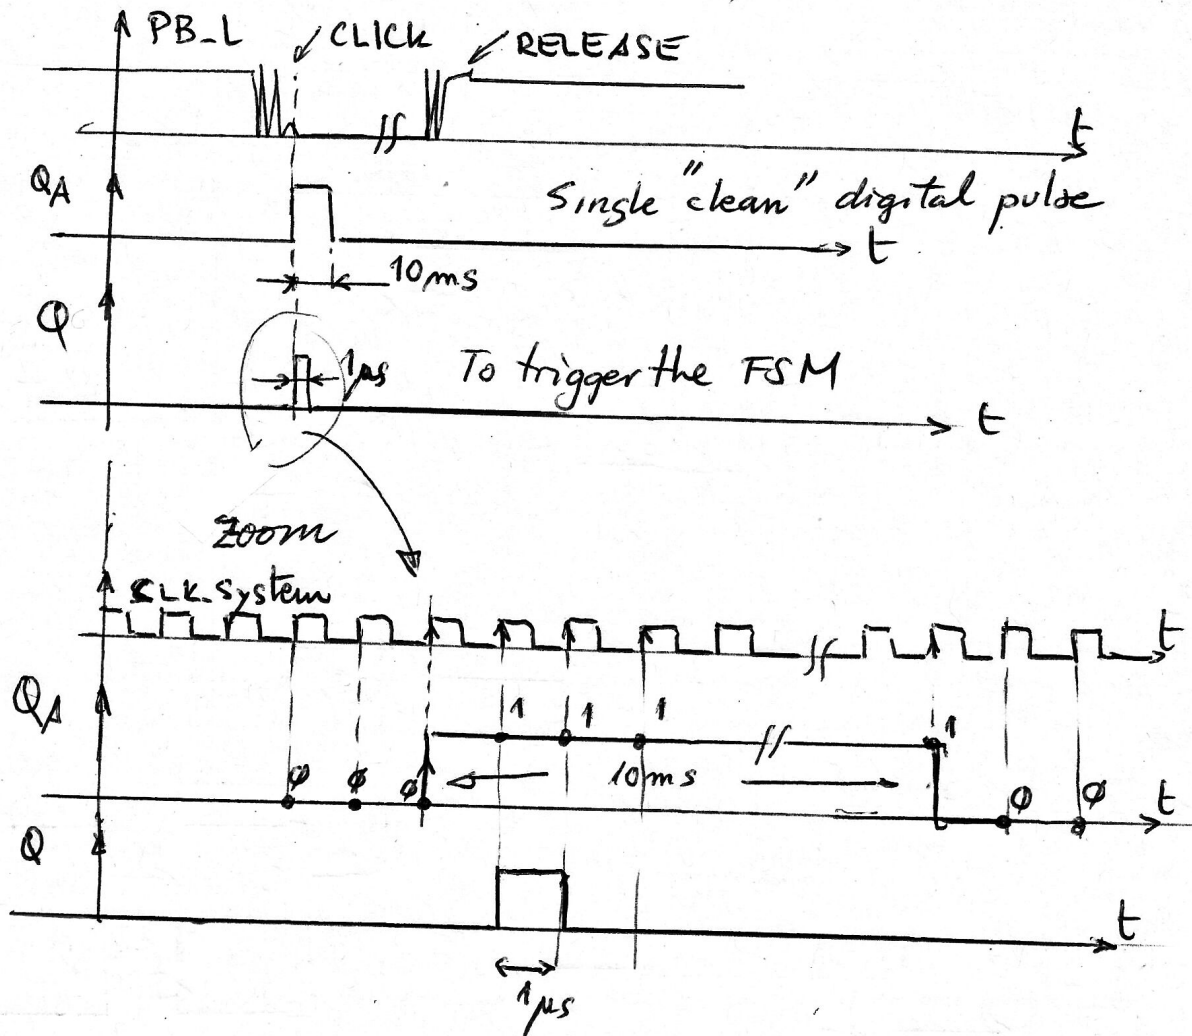 PB_L CLICK RELEASE
t
QA Single "clean" digital pulse
t
10ms
Q
1μs To trigger the FSM
t
Zoom
CLK_System
t
QA 1 1 1 1
φ φ φ 10ms φ φ t
Q
t
1μs